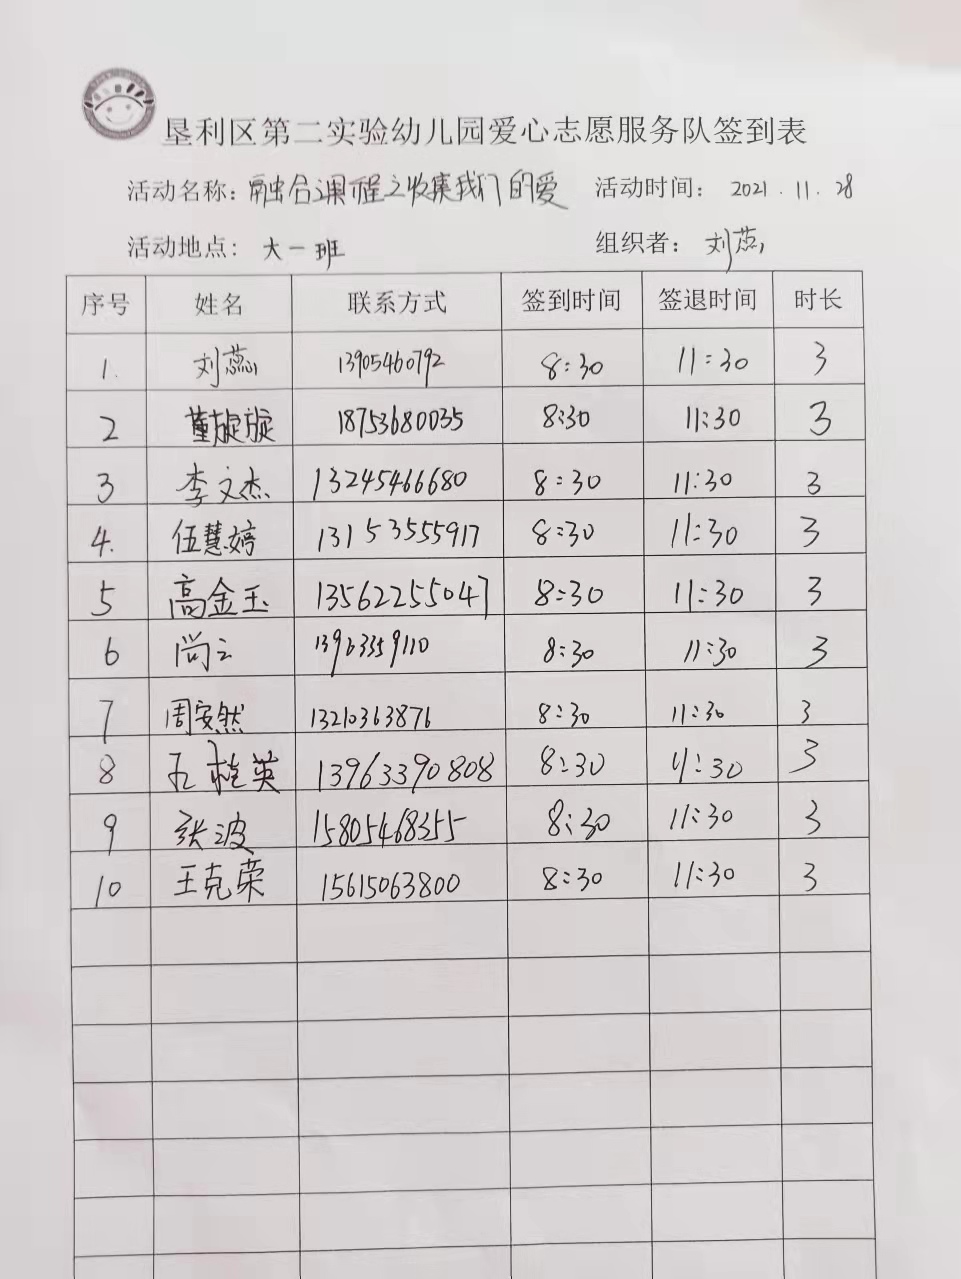 垦利区第二实验幼儿园爱心志愿服务队签到表
活动名称：融合课程之收集我们的爱 活动时间：2021.11.28
活动地点：大一班 组织者：刘蕊
序号 姓名 联系方式 签到时间 签退时间 时长
1. 刘蕊 13905460792 8:30 11:30 3
2 董旋旋 18753680035 8:30 11:30 3
3 李文杰 13245466680 8:30 11:30 3
4. 伍慧婷 13153555917 8:30 11:30 3
5 高金玉 13562255047 8:30 11:30 3
6 尚云 13963359110 8:30 11:30 3
7 周安然 13210363876 8:30 11:30 3
8 孔桂英 13963390808 8:30 11:30 3
9 张波 15805468355 8:30 11:30 3
10 王克荣 15615063800 8:30 11:30 3